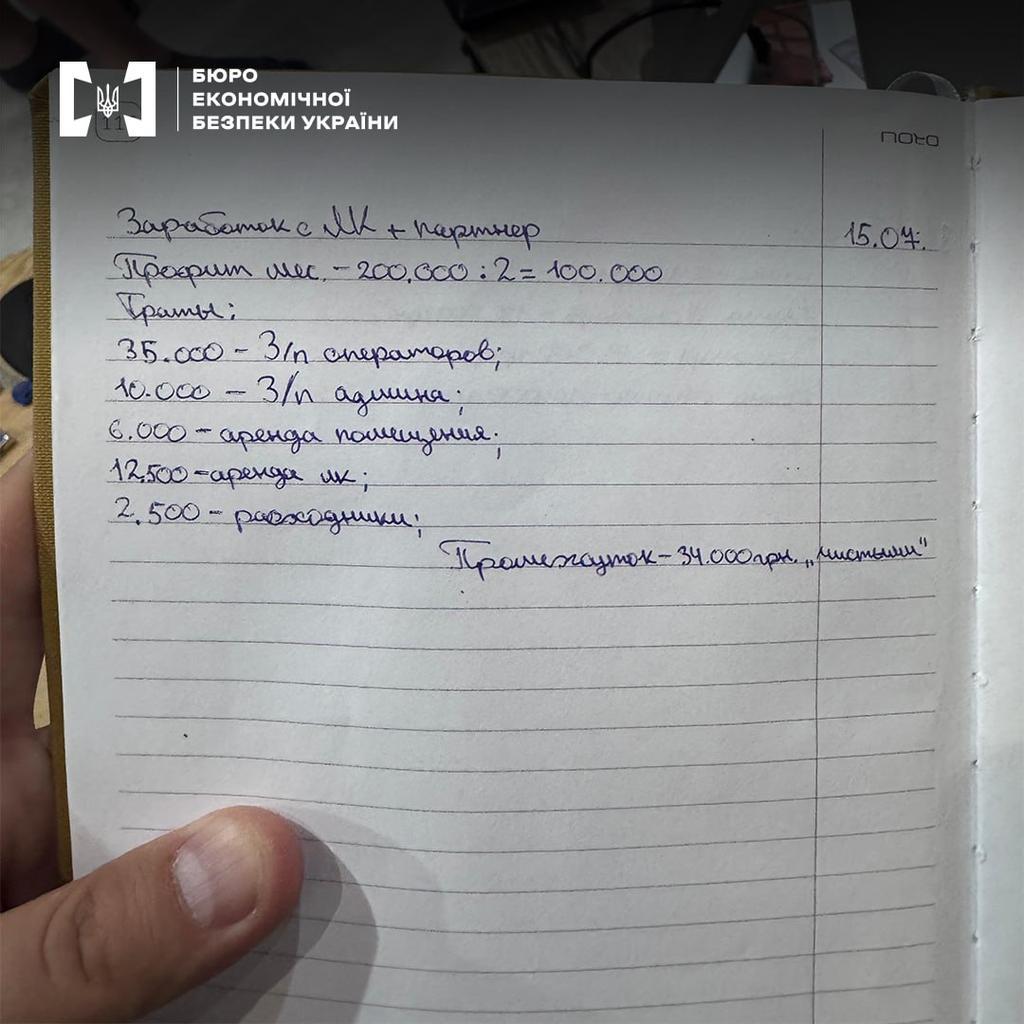 БЮРО
ЕКОНОМІЧНОЇ
БЕЗПЕКИ УКРАЇНИ
11
ПОТО
Заработок с ЛК + партнер
15.07.
Профит мес. - 200.000 : 2 = 100.000
Траты:
35.000 - З/п операторов;
10.000 - З/п админа;
6.000 - аренда помещения;
12.500 - аренда лк;
2.500 - расходники;
Промежуток - 34.000 грн. „чистыми"